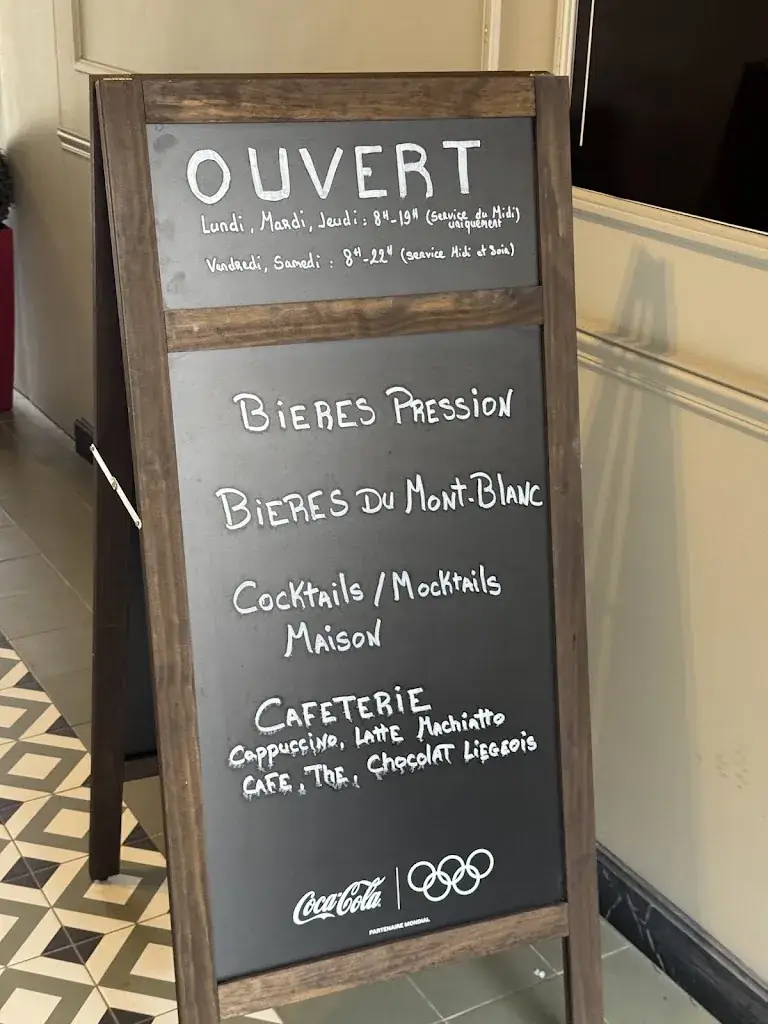 OUVERT
Lundi, Mardi, Jeudi : 8H-19H (Service du Midi)
uniquement
Vendredi, Samedi : 8H-22H (service Midi et Soir)
BIERES PRESSION
BIERES DU MONT-BLANC
COCKTAILS / MOCKTAILS
MAISON
CAFETERIE
Cappuccino, LATTE Machiatto
CAFE, THE, ChocolAT LIEGEOIS
Coca-Cola
PARTENAIRE MONDIAL